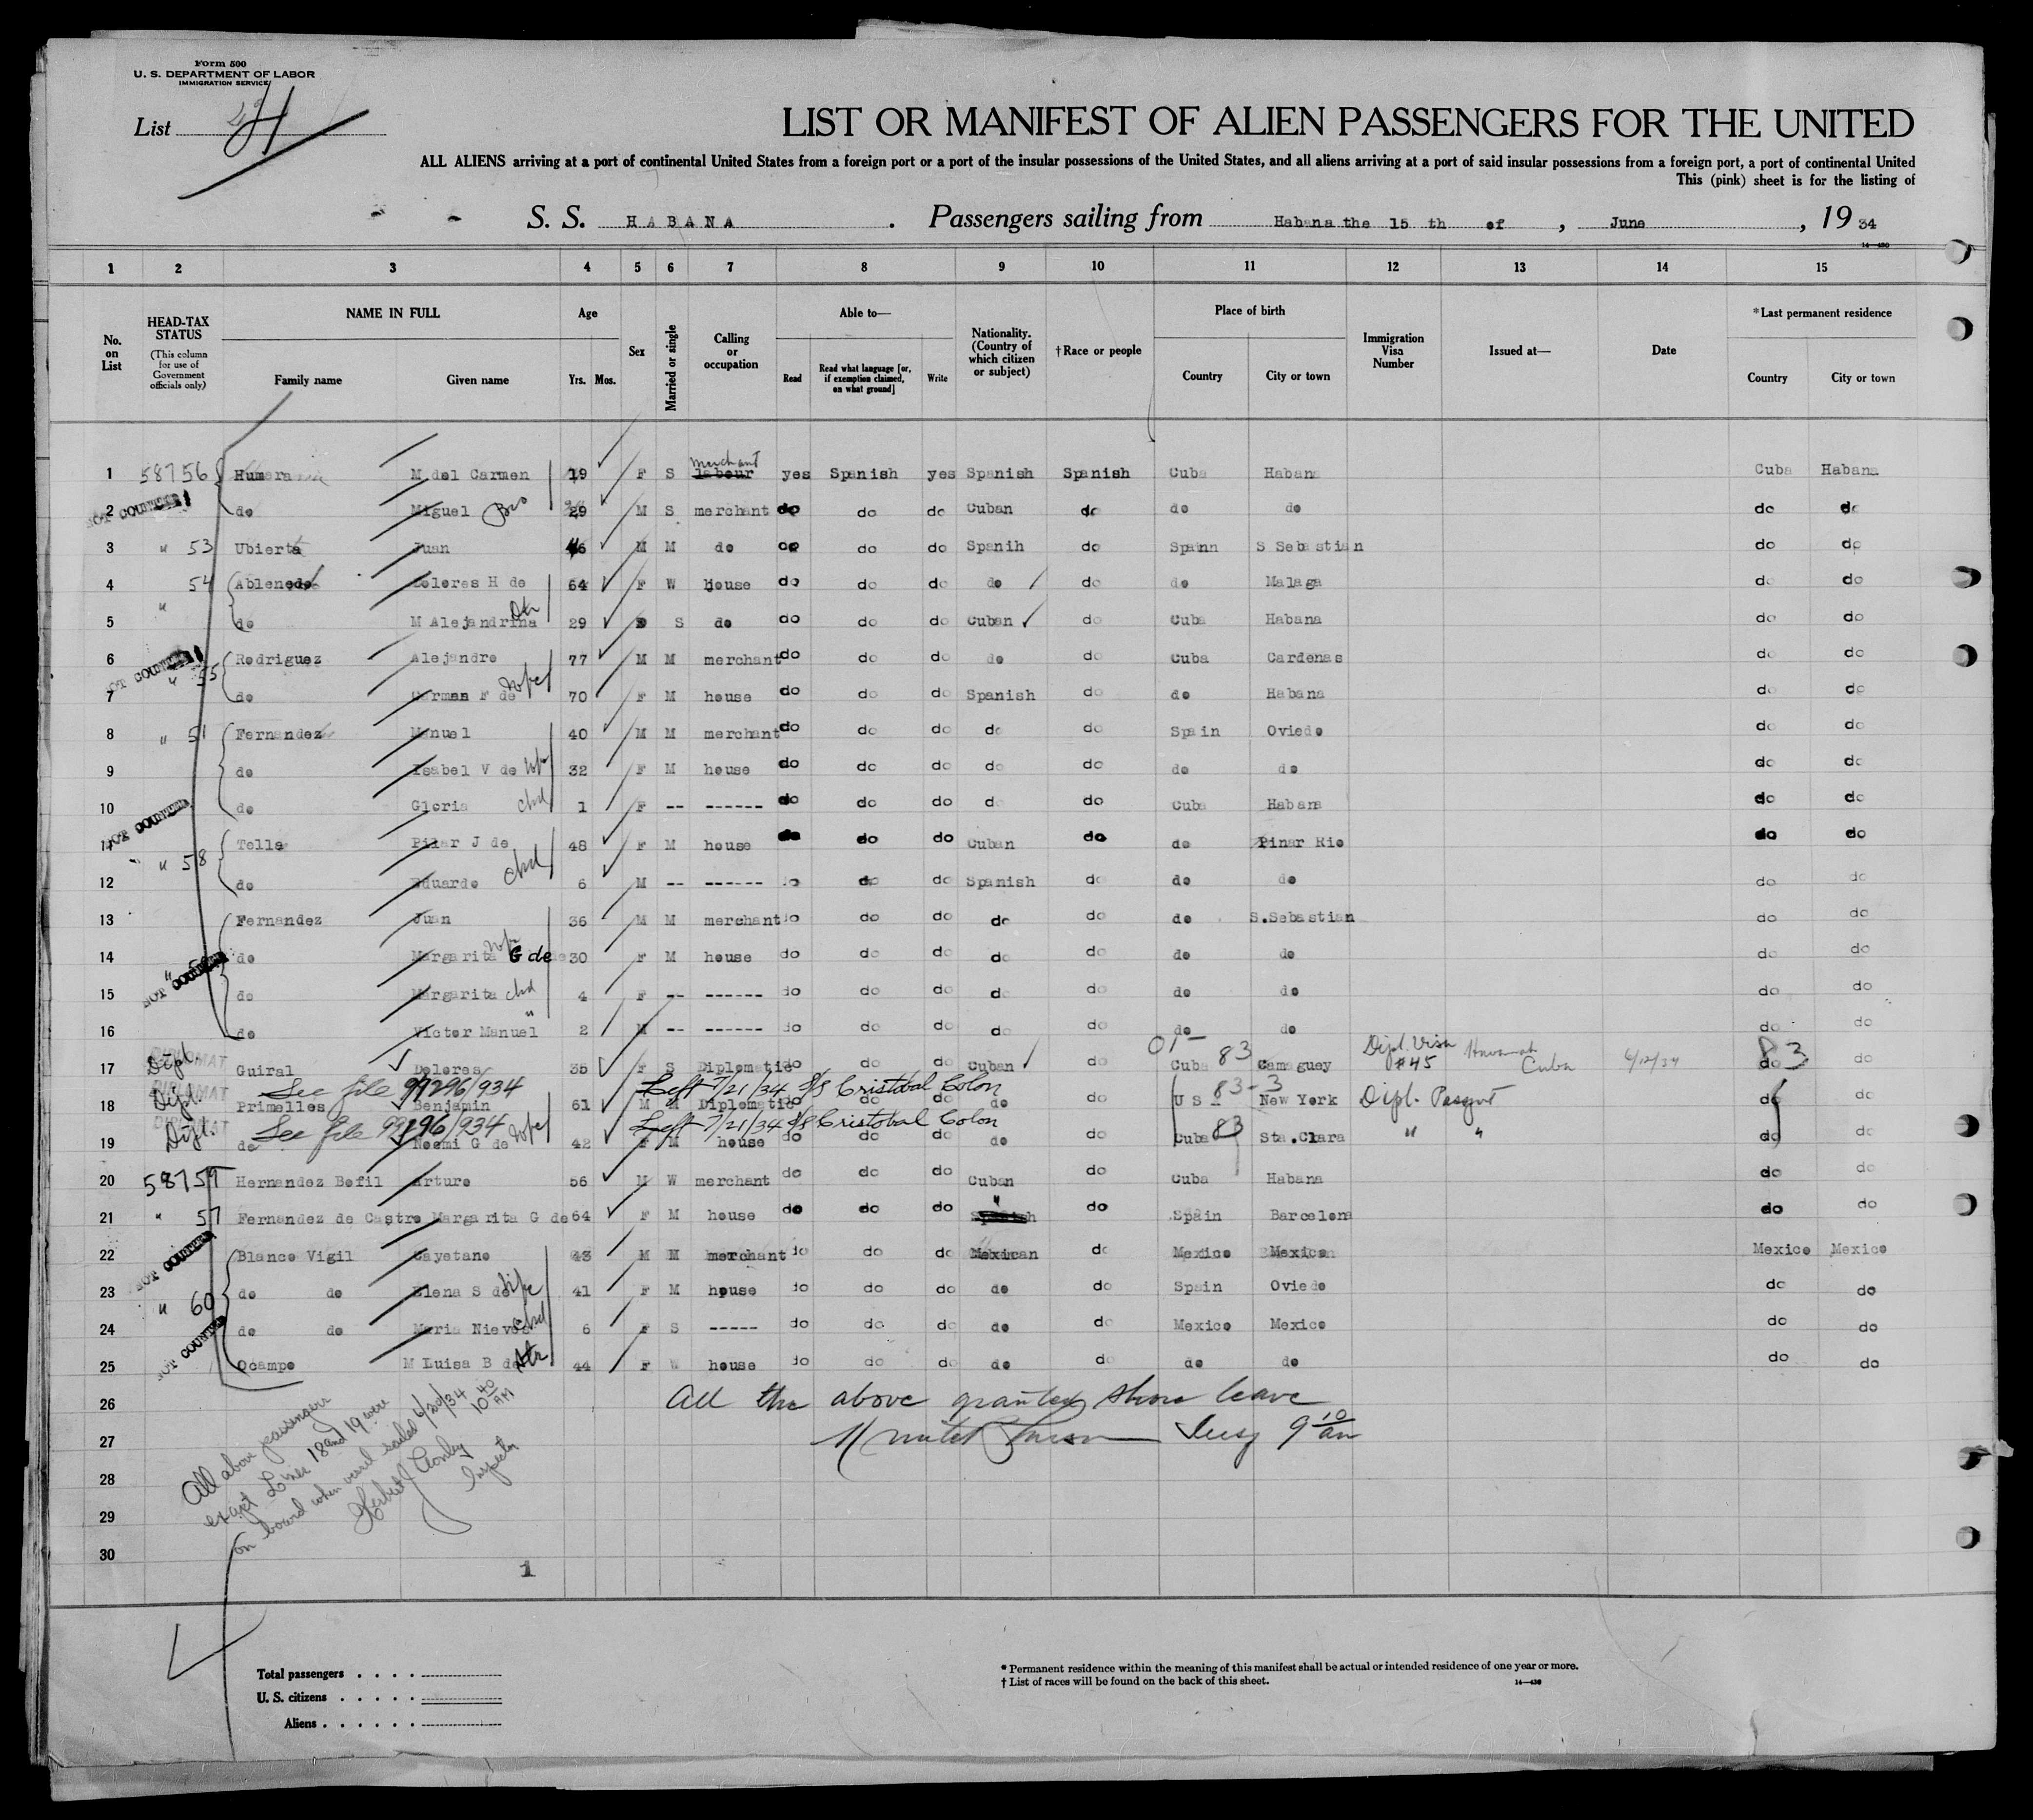 Form 500
U. S. DEPARTMENT OF LABOR
IMMIGRATION SERVICE
List
LIST OR MANIFEST OF ALIEN PASSENGERS FOR THE UNITED
ALL ALIENS arriving at a port of continental United States from a foreign port or a port of the insular possessions of the United States, and all aliens arriving at a port of said insular possessions from a foreign port, a port of continental United
This (pink) sheet is for the listing of
S. S. HABANA . Passengers sailing from Habana the 15 th of , June , 19 34
14—430
1 2 3 4 5 6 7 8 9 10 11 12 13 14 15
No. on List
HEAD-TAX STATUS (This column for use of Government officials only)
NAME IN FULL Family name Given name
Age Yrs. Mos.
Sex
Married or single
Calling or occupation
Able to— Read Read what language [or, if exemption claimed, on what ground] Write
Nationality. (Country of which citizen or subject)
†Race or people
Place of birth Country City or town
Immigration Visa Number
Issued at—
Date
*Last permanent residence Country City or town
1 58756 Humara M del Carmen 19 F S labour merchant yes Spanish yes Spanish Spanish Cuba Habana Cuba Habana
2 NOT COUNTED do Miguel Bro 29 M S merchant do do do Cuban do do do do do
3 " 53 Ubierta Juan M M do do do do Spanih do Spainn S Sebastian do do
4 54 Ablenedo Doleres H de 64 F W house do do do do do do Malaga do do
5 " do M Alejandrina Dtr 29 S do do do do Cuban do Cuba Habana do do
6 NOT COUNTED Rodriguez Alejandro 77 M M merchant do do do do do Cuba Cardenas do do
7 " 55 do German F de Wife 70 F M house do do do Spanish do do Habana do do
8 " 51 Fernandez Manuel 40 M M merchant do do do do do Spain Oviedo do do
9 do Isabel V de Wife 32 F M house do do do do do do do do do
10 do Gloria chd 1 F -- ------ do do do do do Cuba Habana do do
11 NOT COUNTED Telle Pilar J de 48 F M house do do do Cuban do do Pinar Rio do do
12 " 58 do Eduardo chd 6 M -- ------ do do do Spanish do do do do do
13 Fernandez Juan 36 M M merchant do do do do do do S.Sebastian do do
14 " NOT COUNTED do Margarita G de Wife 30 F M house do do do do do do do do do
15 do Margarita chd 4 F -- ------ do do do do do do do do do
16 do Victor Manuel " 2 M -- ------ do do do do do do do do do
17 DIPLOMAT Dipl. Guiral Dolores 35 F S Diplomatic do do do Cuban do Cuba 83 Camaguey Dipl. Visa #45 Havanah Cuba 6/12/34 do 83 do
See file 99296/934 Left 7/21/34 S/S Cristobal Colon
18 DIPLOMAT Dipl. Primelles Benjamin 61 M M Diplomatic do do do do do U S A 83-3 New York Dipl. Passport do do
See file 99296/934 Left 7/21/34 S/S Cristobal Colon
19 DIPLOMAT Dipl. do Noemi G de Wife 42 F M house do do do do do Cuba 83 Sta.Clara " " do do
20 58757 Hernandez Bofil Arturo 56 M W merchant do do do Cuban do Cuba Habana do do
21 " 57 Fernandez de Castro Margarita G de 64 F M house do do do Spanish " do Spain Barcelona do do
22 NOT COUNTED Blanco Vigil Cayetano 43 M M merchant do do do Mexican do Mexico Mexico Mexico Mexico
23 " 60 do do Elena S de Wife 41 F M house do do do do do Spain Oviedo do do
24 do do Maria Nieves chd 6 F S ----- do do do do do Mexico Mexico do do
25 NOT COUNTED Ocampo M Luisa B de Dtr 44 F W house do do do do do do do do do
26 All the above granted shore leave
27 Insp 9 10/am
28
29
30
All above passengers
except Lines 18 and 19 were
on board when vessel sailed 6/20/34 10 40 AM
Herbert Conley
Inspector
1
Total passengers . . . .
U. S. citizens . . . . .
Aliens . . . . . .
* Permanent residence within the meaning of this manifest shall be actual or intended residence of one year or more.
† List of races will be found on the back of this sheet.
14—430